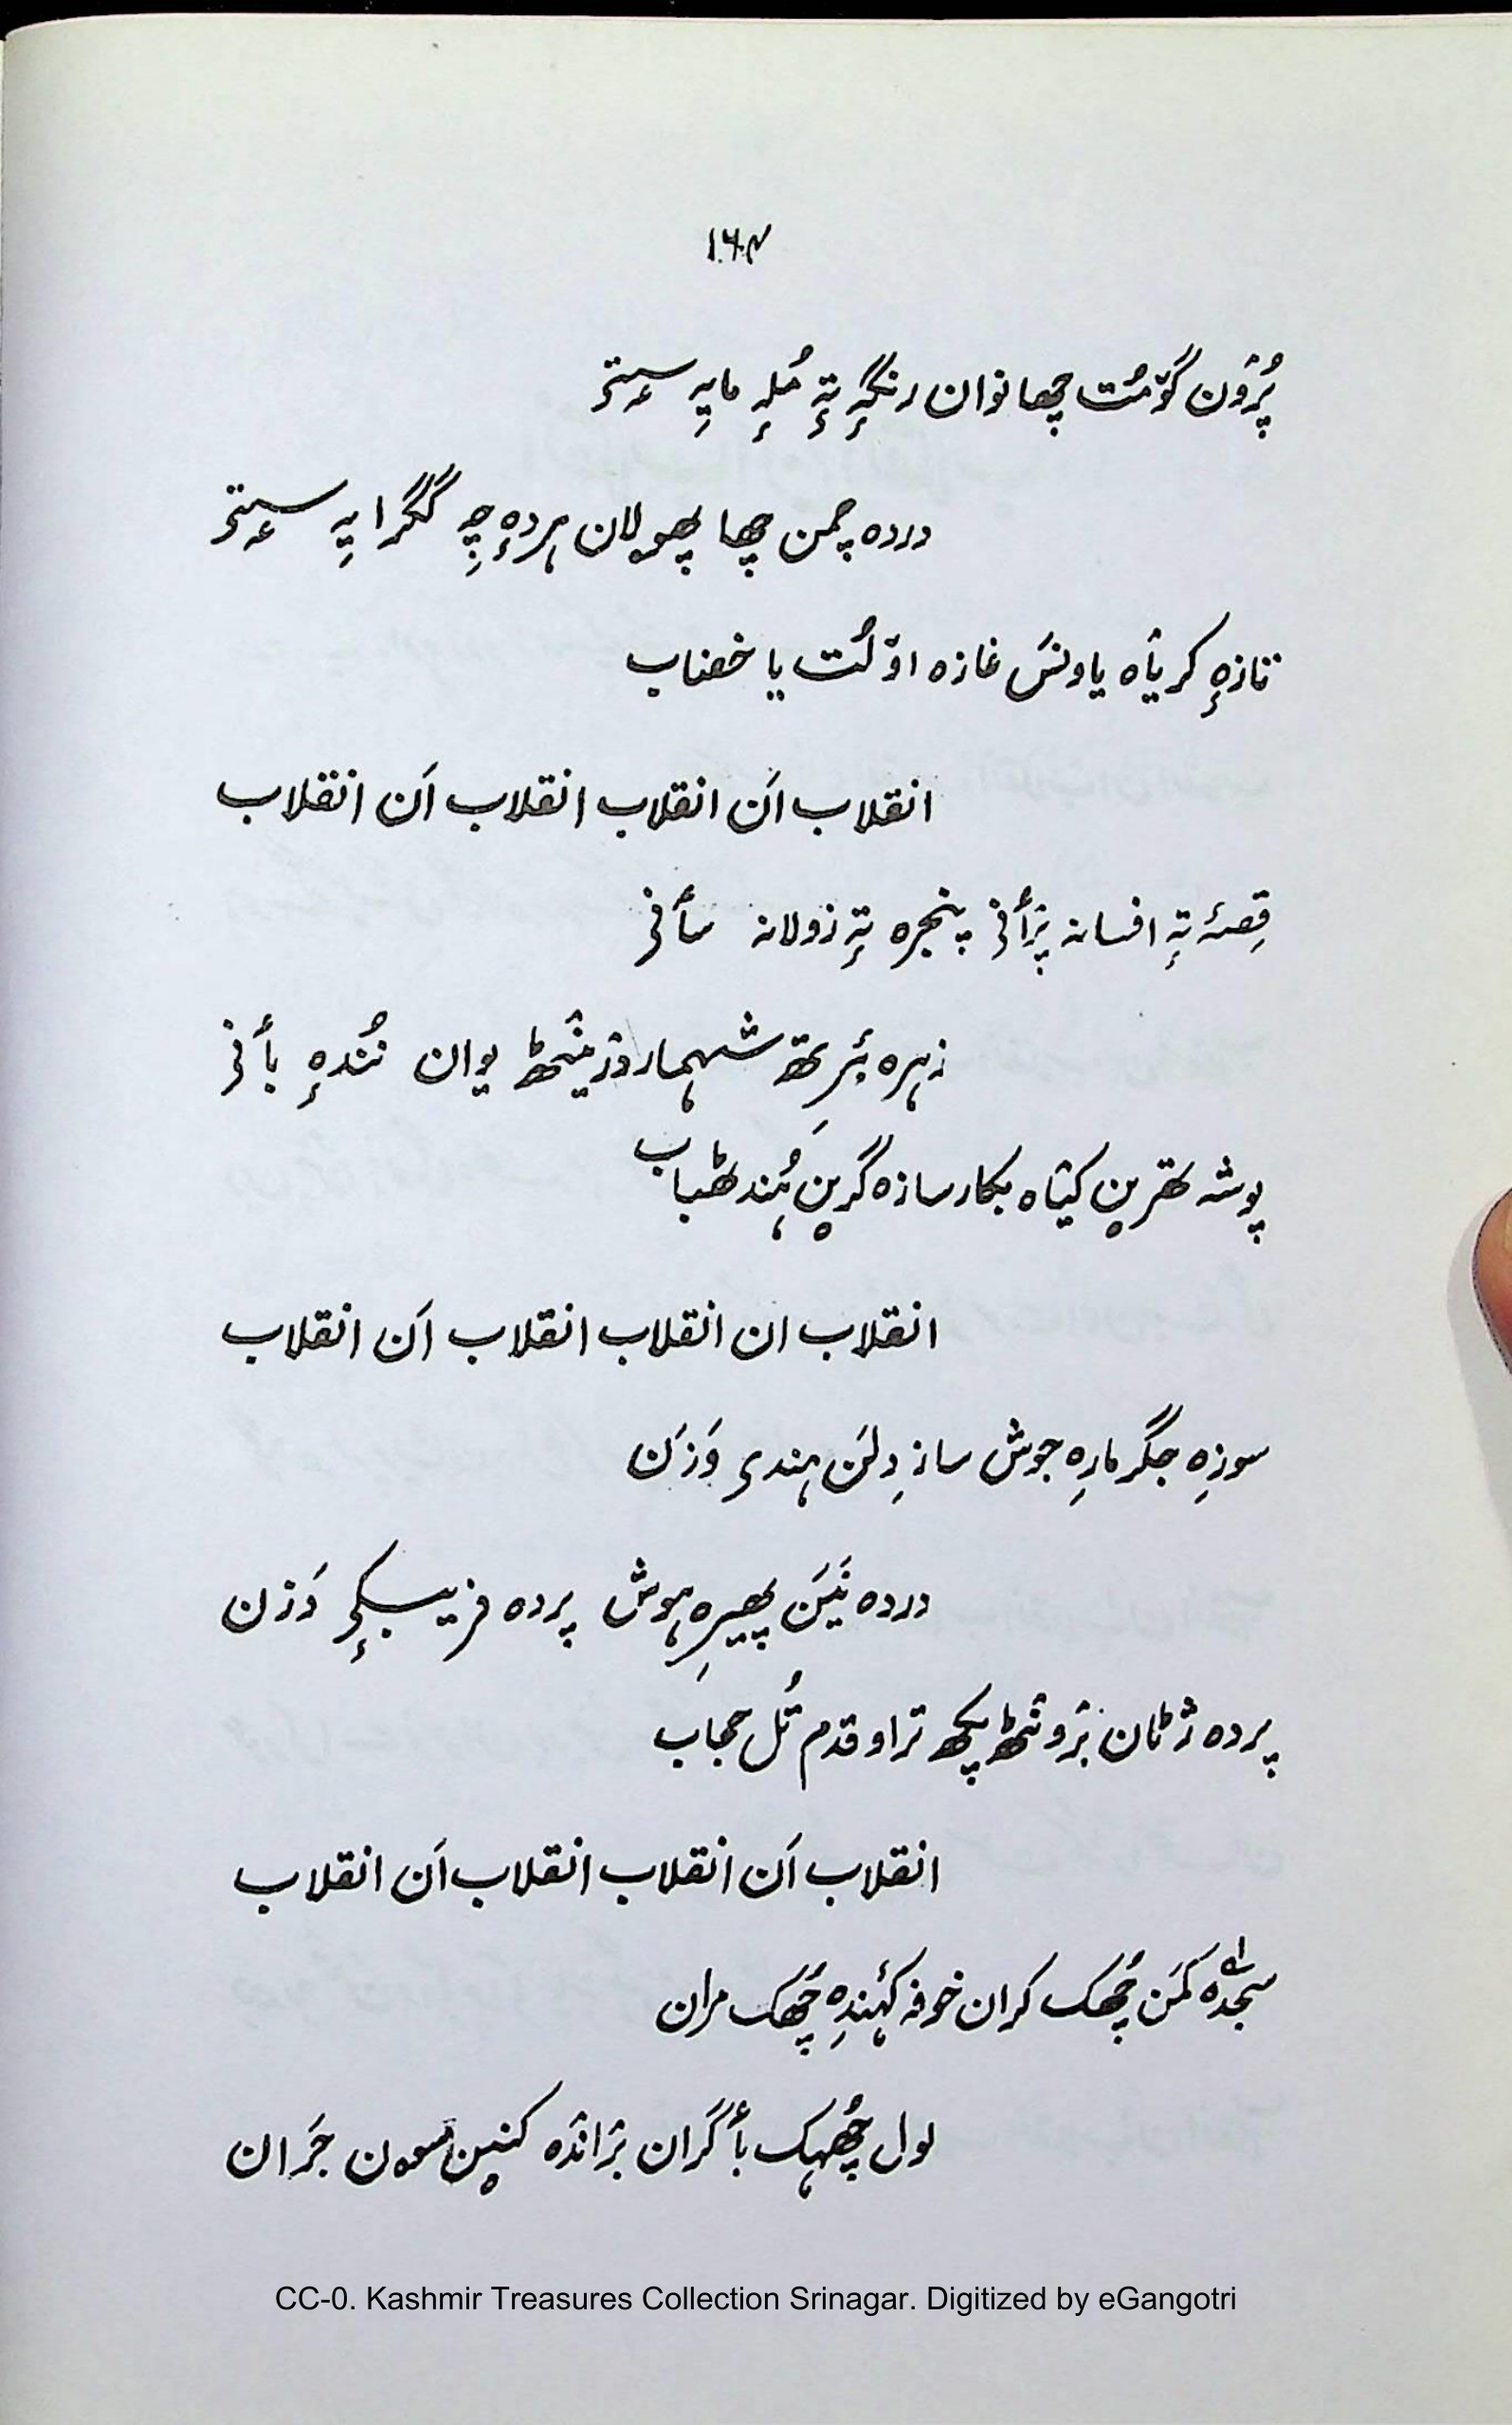 ۱۶۴
پُرٔون گوٚمُت چھا نوان رنگہٕ تہٕ مُلہٕ مایہِ سۭتۍ
دردہ چمن چھا پھولان ہردہٕ چہِ گگرایہِ سۭتۍ
تازہٕ کریاہ یاونَس غازہ اوٚلُت یا خضاب
انقلاب اَن انقلاب انقلاب اَن انقلاب
قِصۂ تہٕ افسانہ پرٛأنۍ پنجرہ تہٕ زولانہ سأنۍ
زہرہ بٔرِتھ شہمار ڈینٛٹھ یوان نُندہٕ بأنۍ
پوشہ تھرین کیٛاہ بکار سازہ گرین ہُند ٹھباب
انقلاب ان انقلاب انقلاب اَن انقلاب
سوزِہ جگر مارِہ جوش ساز دِلَن ہندۍ وَزَن
دردہ نَیَن پھیرِہ ہوش پردہ فریبکۍ دَزن
پردہ ژٹان برٛونٛٹھ پکھ تراو قدم تُل حجاب
انقلاب اَن انقلاب انقلاب اَن انقلاب
سجدٕہ کمَن چُھک کران خوفہ کٔہندِہ چُھک مران
لول چُھہک بأگران برٛانٛدہ کنین سۄن جَران
CC-0. Kashmir Treasures Collection Srinagar. Digitized by eGangotri